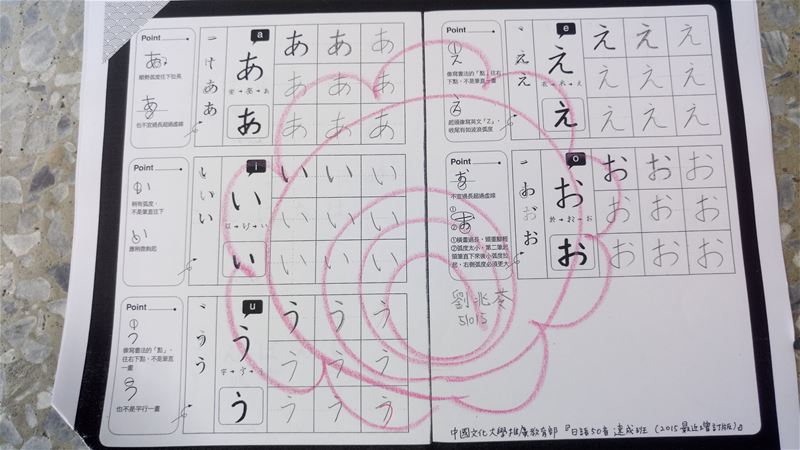 Point
a
あ
あ
あ
あ
あ
順勢弧度往下拉長
あ
也不宜過長超過虛線
安→あ
あ
あ
あ
あ
あ
あ
あ
Point
i
い
い
い
い
い
稍有弧度,
不是筆直往下
應稍微鉤起
以→い
い
い
い
い
い
い
い
い
Point
u
う
う
う
う
う
像寫書法的「點」,
往右下點,不是筆直
一畫
也不是平行一畫
宇→う
う
う
う
う
う
う
う
う
Point
e
え
え
え
え
え
像寫書法的「點」往右
下點,不是筆直一畫
起頭像寫英文「Z」,
收尾有如波浪弧度
衣→え
え
え
え
え
え
え
え
え
Point
o
お
お
お
お
お
不宜過長超過虛線
①橫畫過長,頭重腳輕
②弧度太小,第二筆起
頭筆直下來後小弧度拉
起,右側弧度必須更大
於→お
お
お
お
お
お
お
お
お
劉兆菶
51015
中國文化大學推廣教育部『日語50音速成班(2015最近增訂版)』